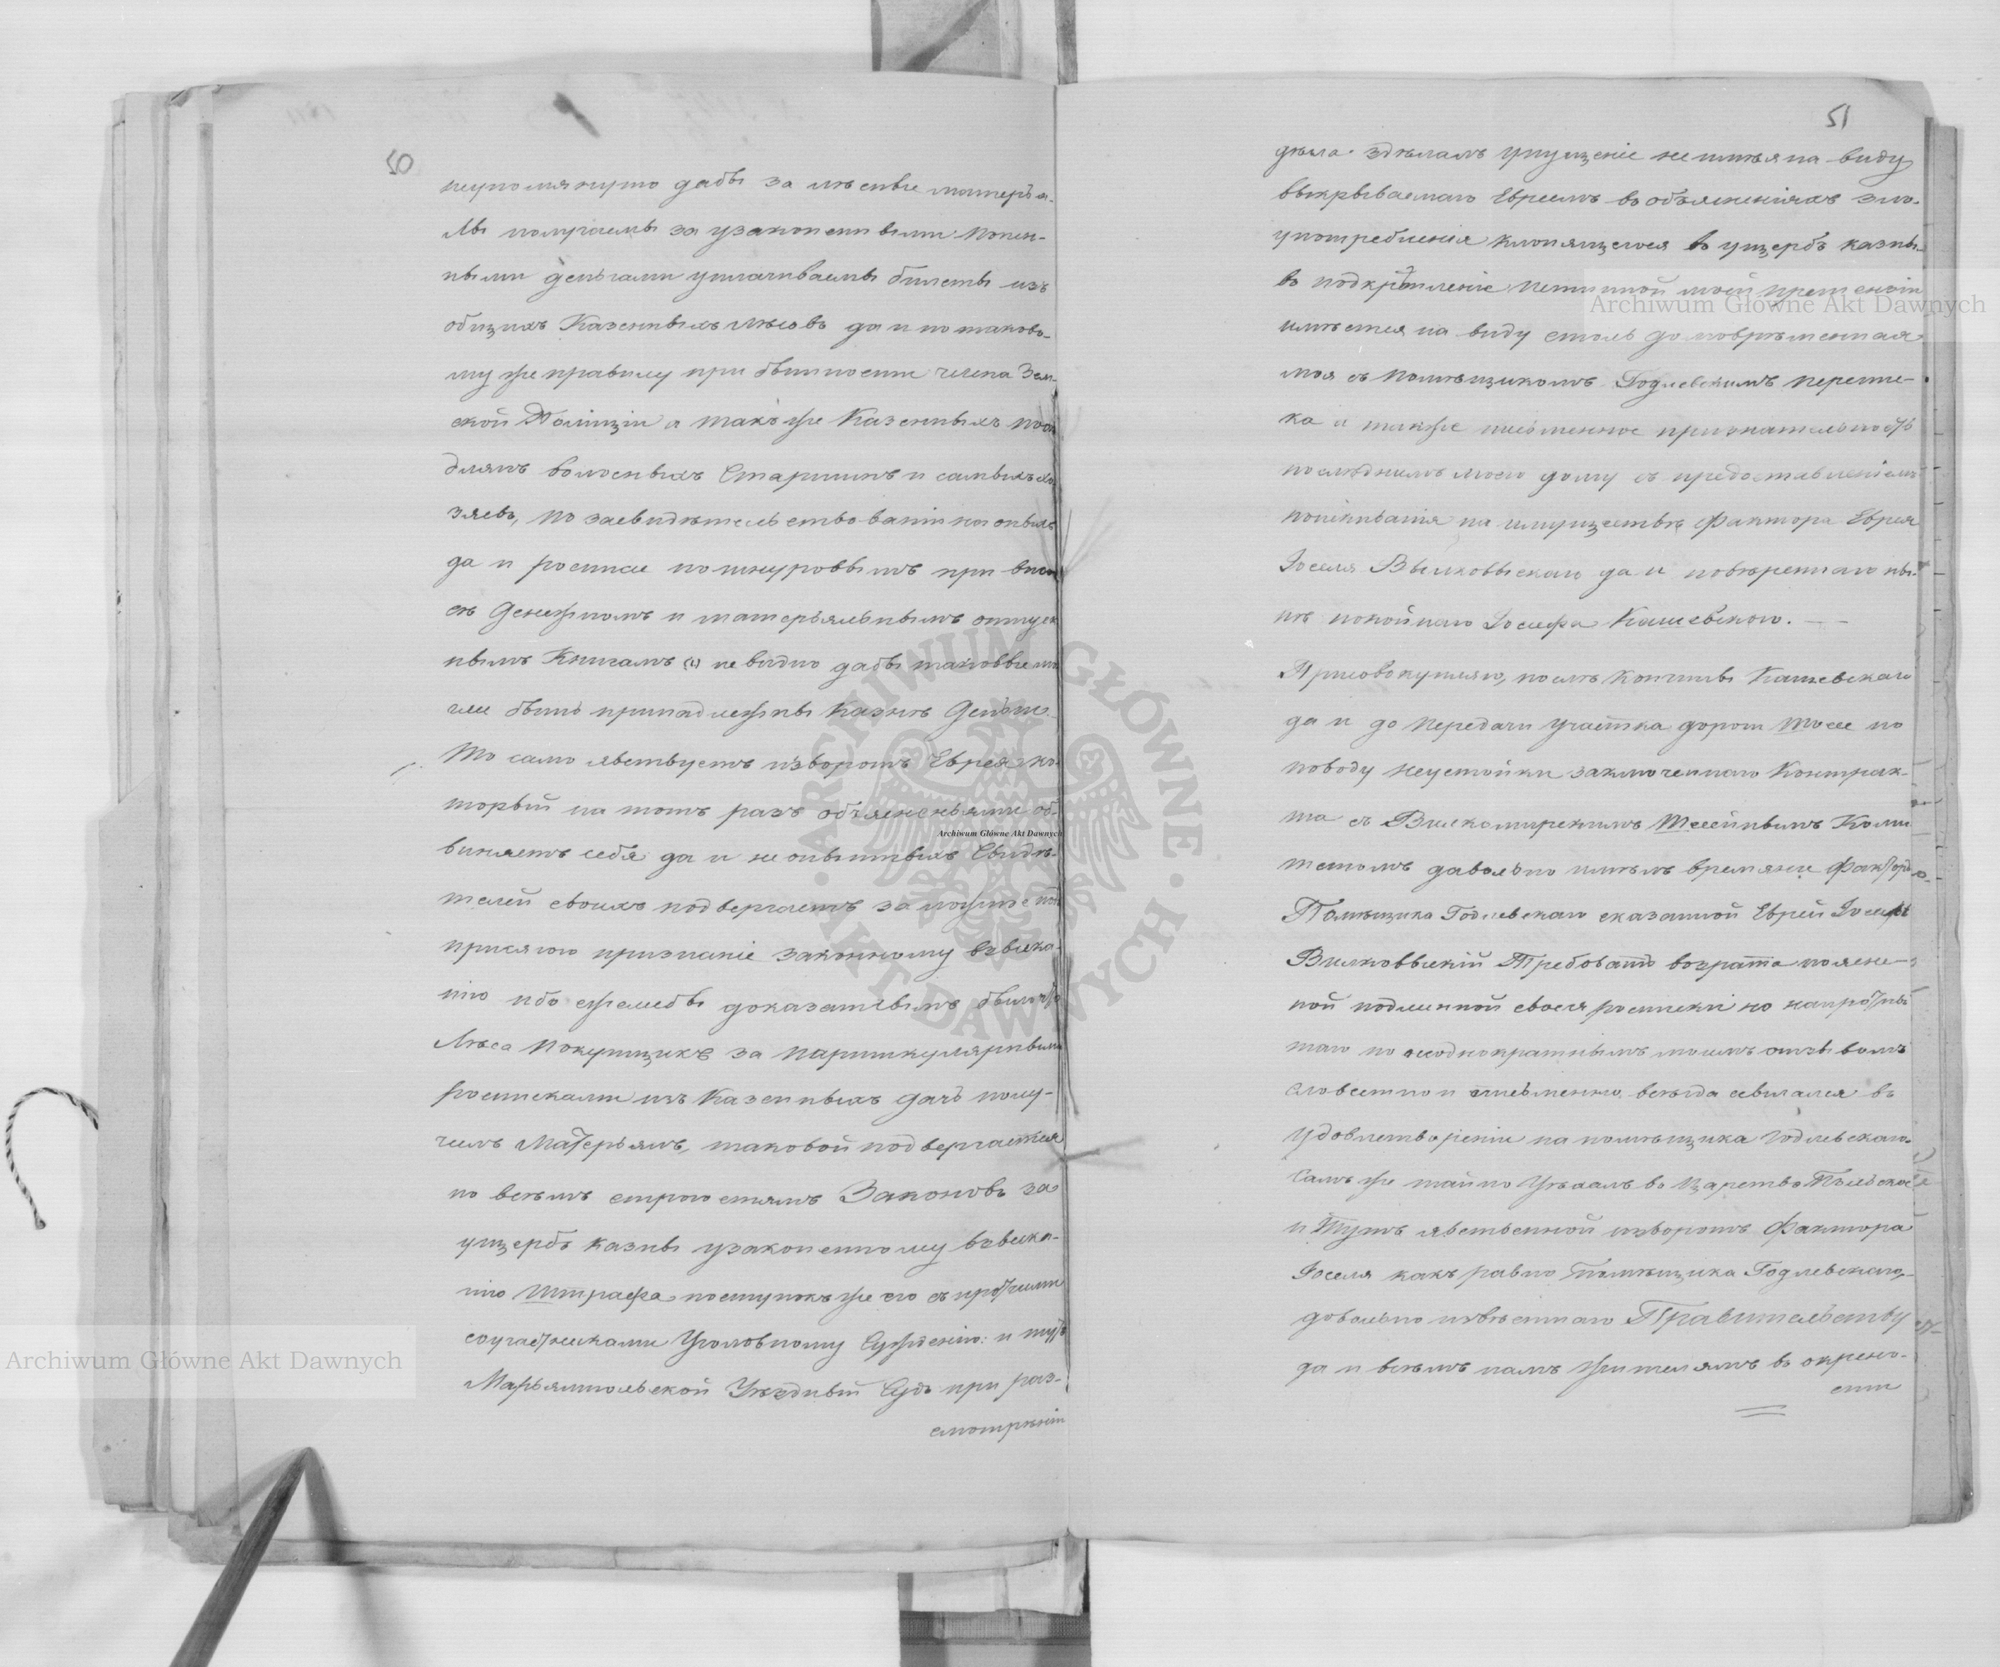 50
неупомянуто дабы за лѣсные матерья-
лы получаемы за узаконенными попен-
ными деньгами уплачиваемы билеты изъ
общихъ Казенныхъ лѣсовъ да и по таково-
му же правилу при бытности члена Зем-
ской Полиціи а такъ же Казенныхъ
волосныхъ Старшинъ и самыхъ хо-
зяевъ, по засвидѣтельствованіи
да и росписе по шнуровымъ при
съ Денежномъ и матерьяльнымъ отпуск
нымъ Книгамъ (и) не видно дабы таковые
или были принадлежны Казнѣ Деньги.
То само явствуетъ изворотъ Еврея ко-
торый на тотъ разъ объясненьями об-
виняетъ себя да и не опытныхъ Свидѣ-
телей своихъ подвергаетъ за
присягою признаніе законному взыска-
нію ибо ежелибы доказательнымъ было что
Лѣса Покупщикъ за партикулярными
росписками изъ Казенныхъ дачъ полу-
чилъ Матерьялъ, таковой подвергается
по всѣмъ строгостямъ Законовъ за
ущербъ казны узаконенному взыска-
нію Штрафа поступокъ же его съ прочими
соучастниками Уголовному Сужденію: и тутъ
Марьямпольской Уѣздный Судъ при раз-
смотрѣніи
51
дѣла здѣлалъ упущеніе неимѣя на виду
выкрываемаго Евреемъ въ объясненіяхъ зло-
употребленія клонящегося въ ущербъ казны
въ подкрѣпленіе истинной моей претенсіи
имѣется на виду столь долговрѣменная
моя съ помѣщикомъ Годлевскимъ перепис-
ка и также письменное признательность
послѣднимъ моего дому съ предоставленіемъ
поискиванія на имуществѣ фактора Еврея
Іоселя Вылковыскаго да и повѣреннаго ны-
нѣ покойнаго Іосифа Кашевского. —
Присовокупляю, послѣ кончины Кашевскаго
да и до передачи участка дороги Шоссе по
поводу неустойки заключеннаго Контрак-
та съ Вилкомирскимъ Шоссейнымъ Коми
тетомъ довольно имѣлъ времяни Факторъ
Помѣщика Годлевскаго сказанной Еврей Іосель
Вилковыскій Требовать возрата поясне-
ной подлинной своея росписки но напротивъ
таго по неоднократнымъ моимъ отзывамъ
словестно и письменно, всегда ссылался въ
Удовлетвореніи на помѣщика Годлевскаго
самъ же тайно Уѣхалъ въ Царство Польское
и Тутъ явственной изворотъ фактора
Іоселя какъ равно Помѣщика Годлевскаго,
довольно извѣстнаго Правительству
да и всѣмъ намъ жителямъ въ окрено-
сти
Archiwum Główne Akt Dawnych
Archiwum Główne Akt Dawnych
Archiwum Główne Akt Dawnych
ARCHIWUM GŁÓWNE AKT DAWNYCH